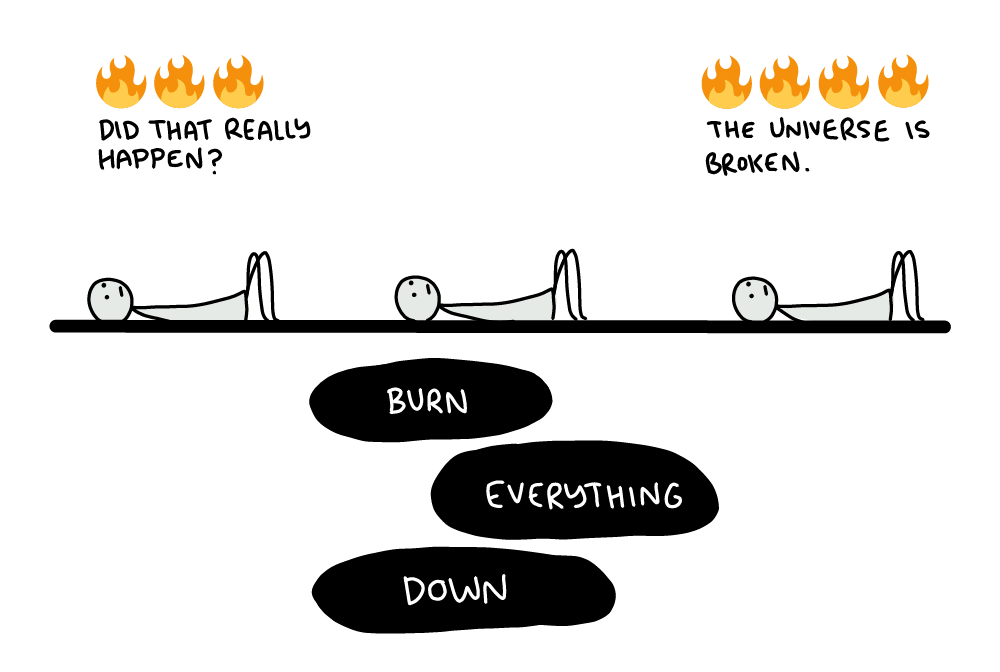 DID THAT REALLY
HAPPEN?
THE UNIVERSE IS
BROKEN.
BURN
EVERYTHING
DOWN